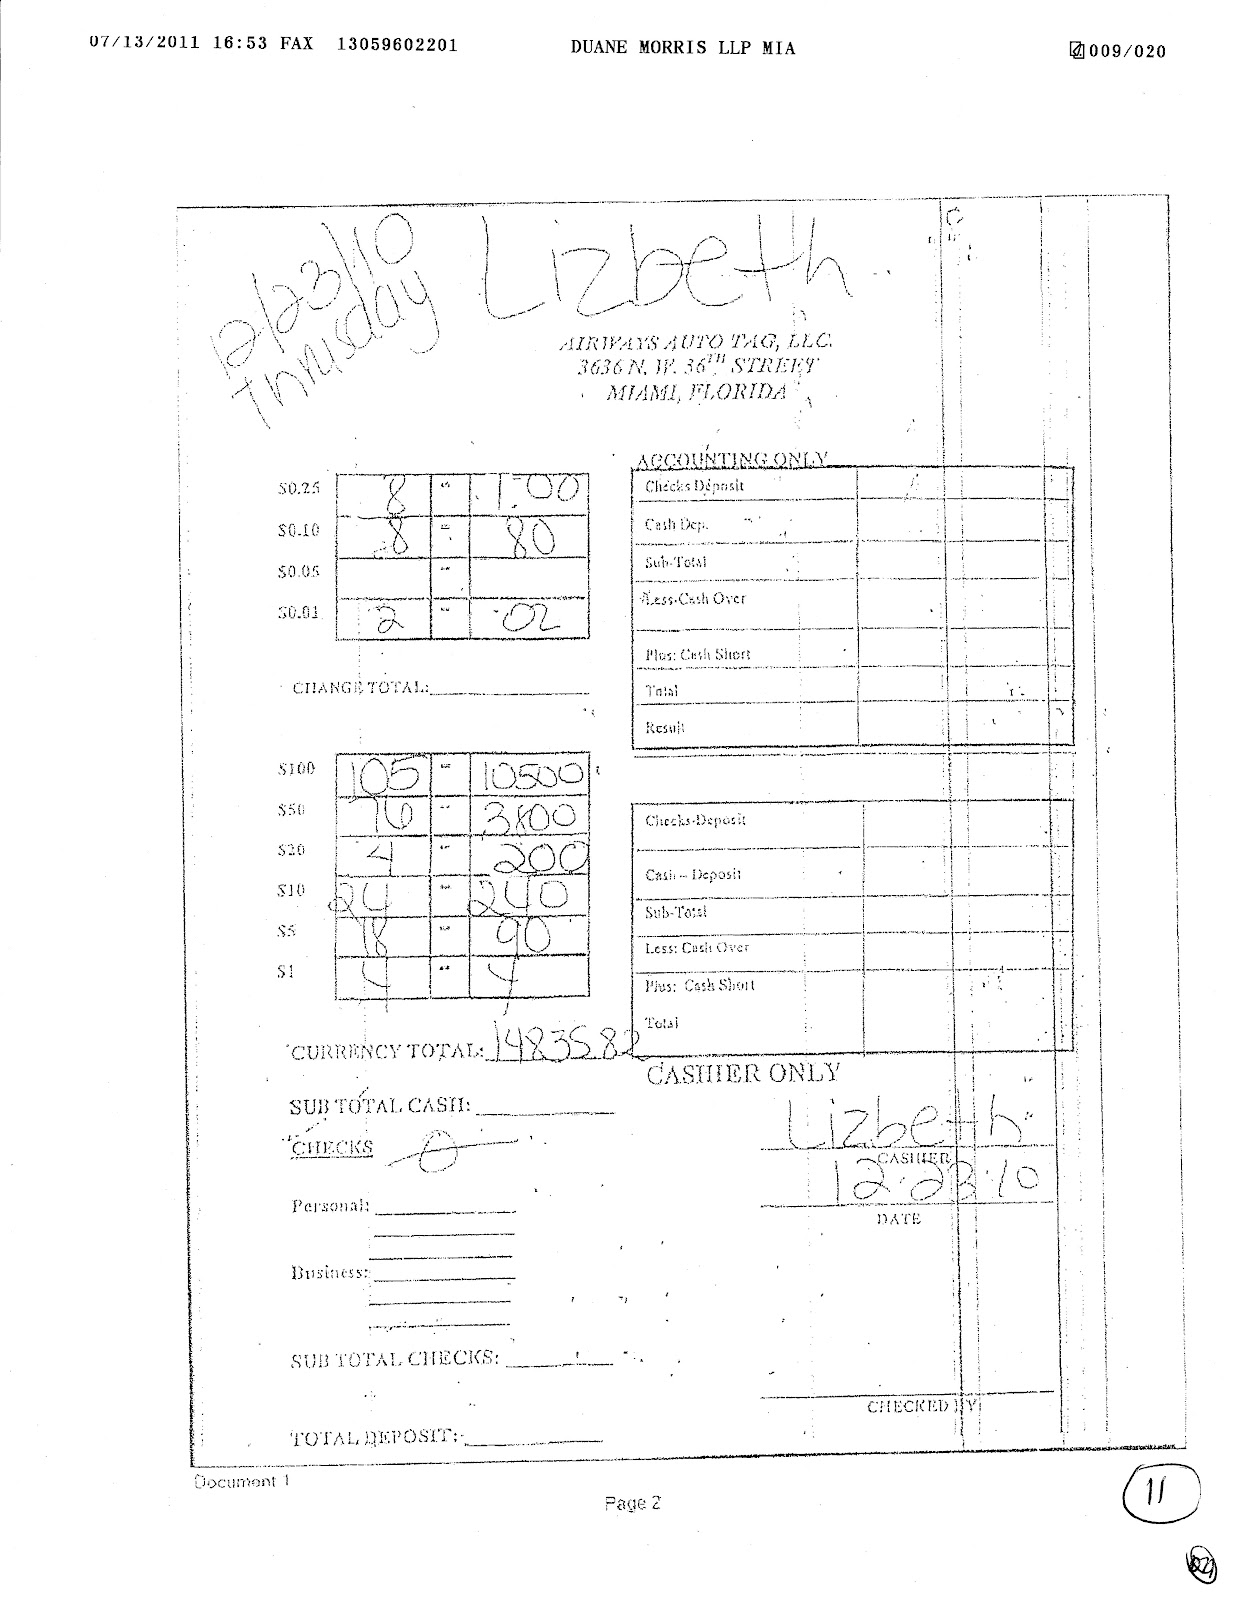 07/13/2011 16:53 FAX 13059602201 DUANE MORRIS LLP MIA 009/020
12/23/10 Lizbeth
Thrusday
AIRWAYS AUTO TAG, LLC.
3636 N. W. 36TH STREET
MIAMI, FLORIDA
ACCOUNTING ONLY
$0.25 8 = 1.00
$0.10 8 = 80
$0.05 =
$0.01 2 = .02
CHANGE TOTAL:
Checks Deposit
Cash Dep.
Sub-Total
Less-Cash Over
Plus: Cash Short
Total
Result
$100 105 = 10500
$50 76 = 3800
$20 4 = 200
$10 24 = 240
$5 18 = 90
$1 4 = 4
CURRENCY TOTAL: 14835.82
Checks-Deposit
Cash – Deposit
Sub-Total
Less: Cash Over
Plus: Cash Short
Total
CASHIER ONLY
SUB TOTAL CASH:
CHECKS 0
Lizbeth
CASHIER
12.23.10
DATE
Personal:
Business:
SUB TOTAL CHECKS:
CHECKED BY
TOTAL DEPOSIT:
Document 1
Page 2
11